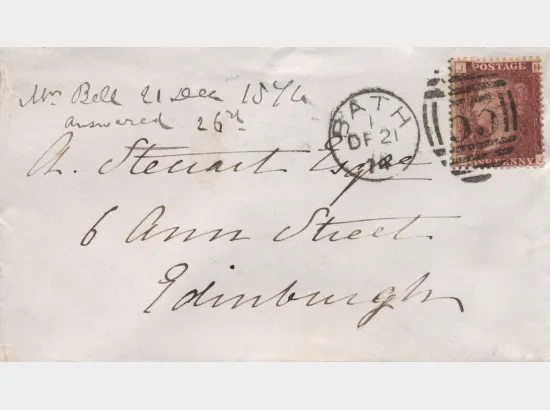 Mr Bell 21 Dec 1874
answered 26th
A. Steuart Esqre
6 Ann Street
Edinburgh
BATH
1
DE 21
74
53
POSTAGE
ONE PENNY